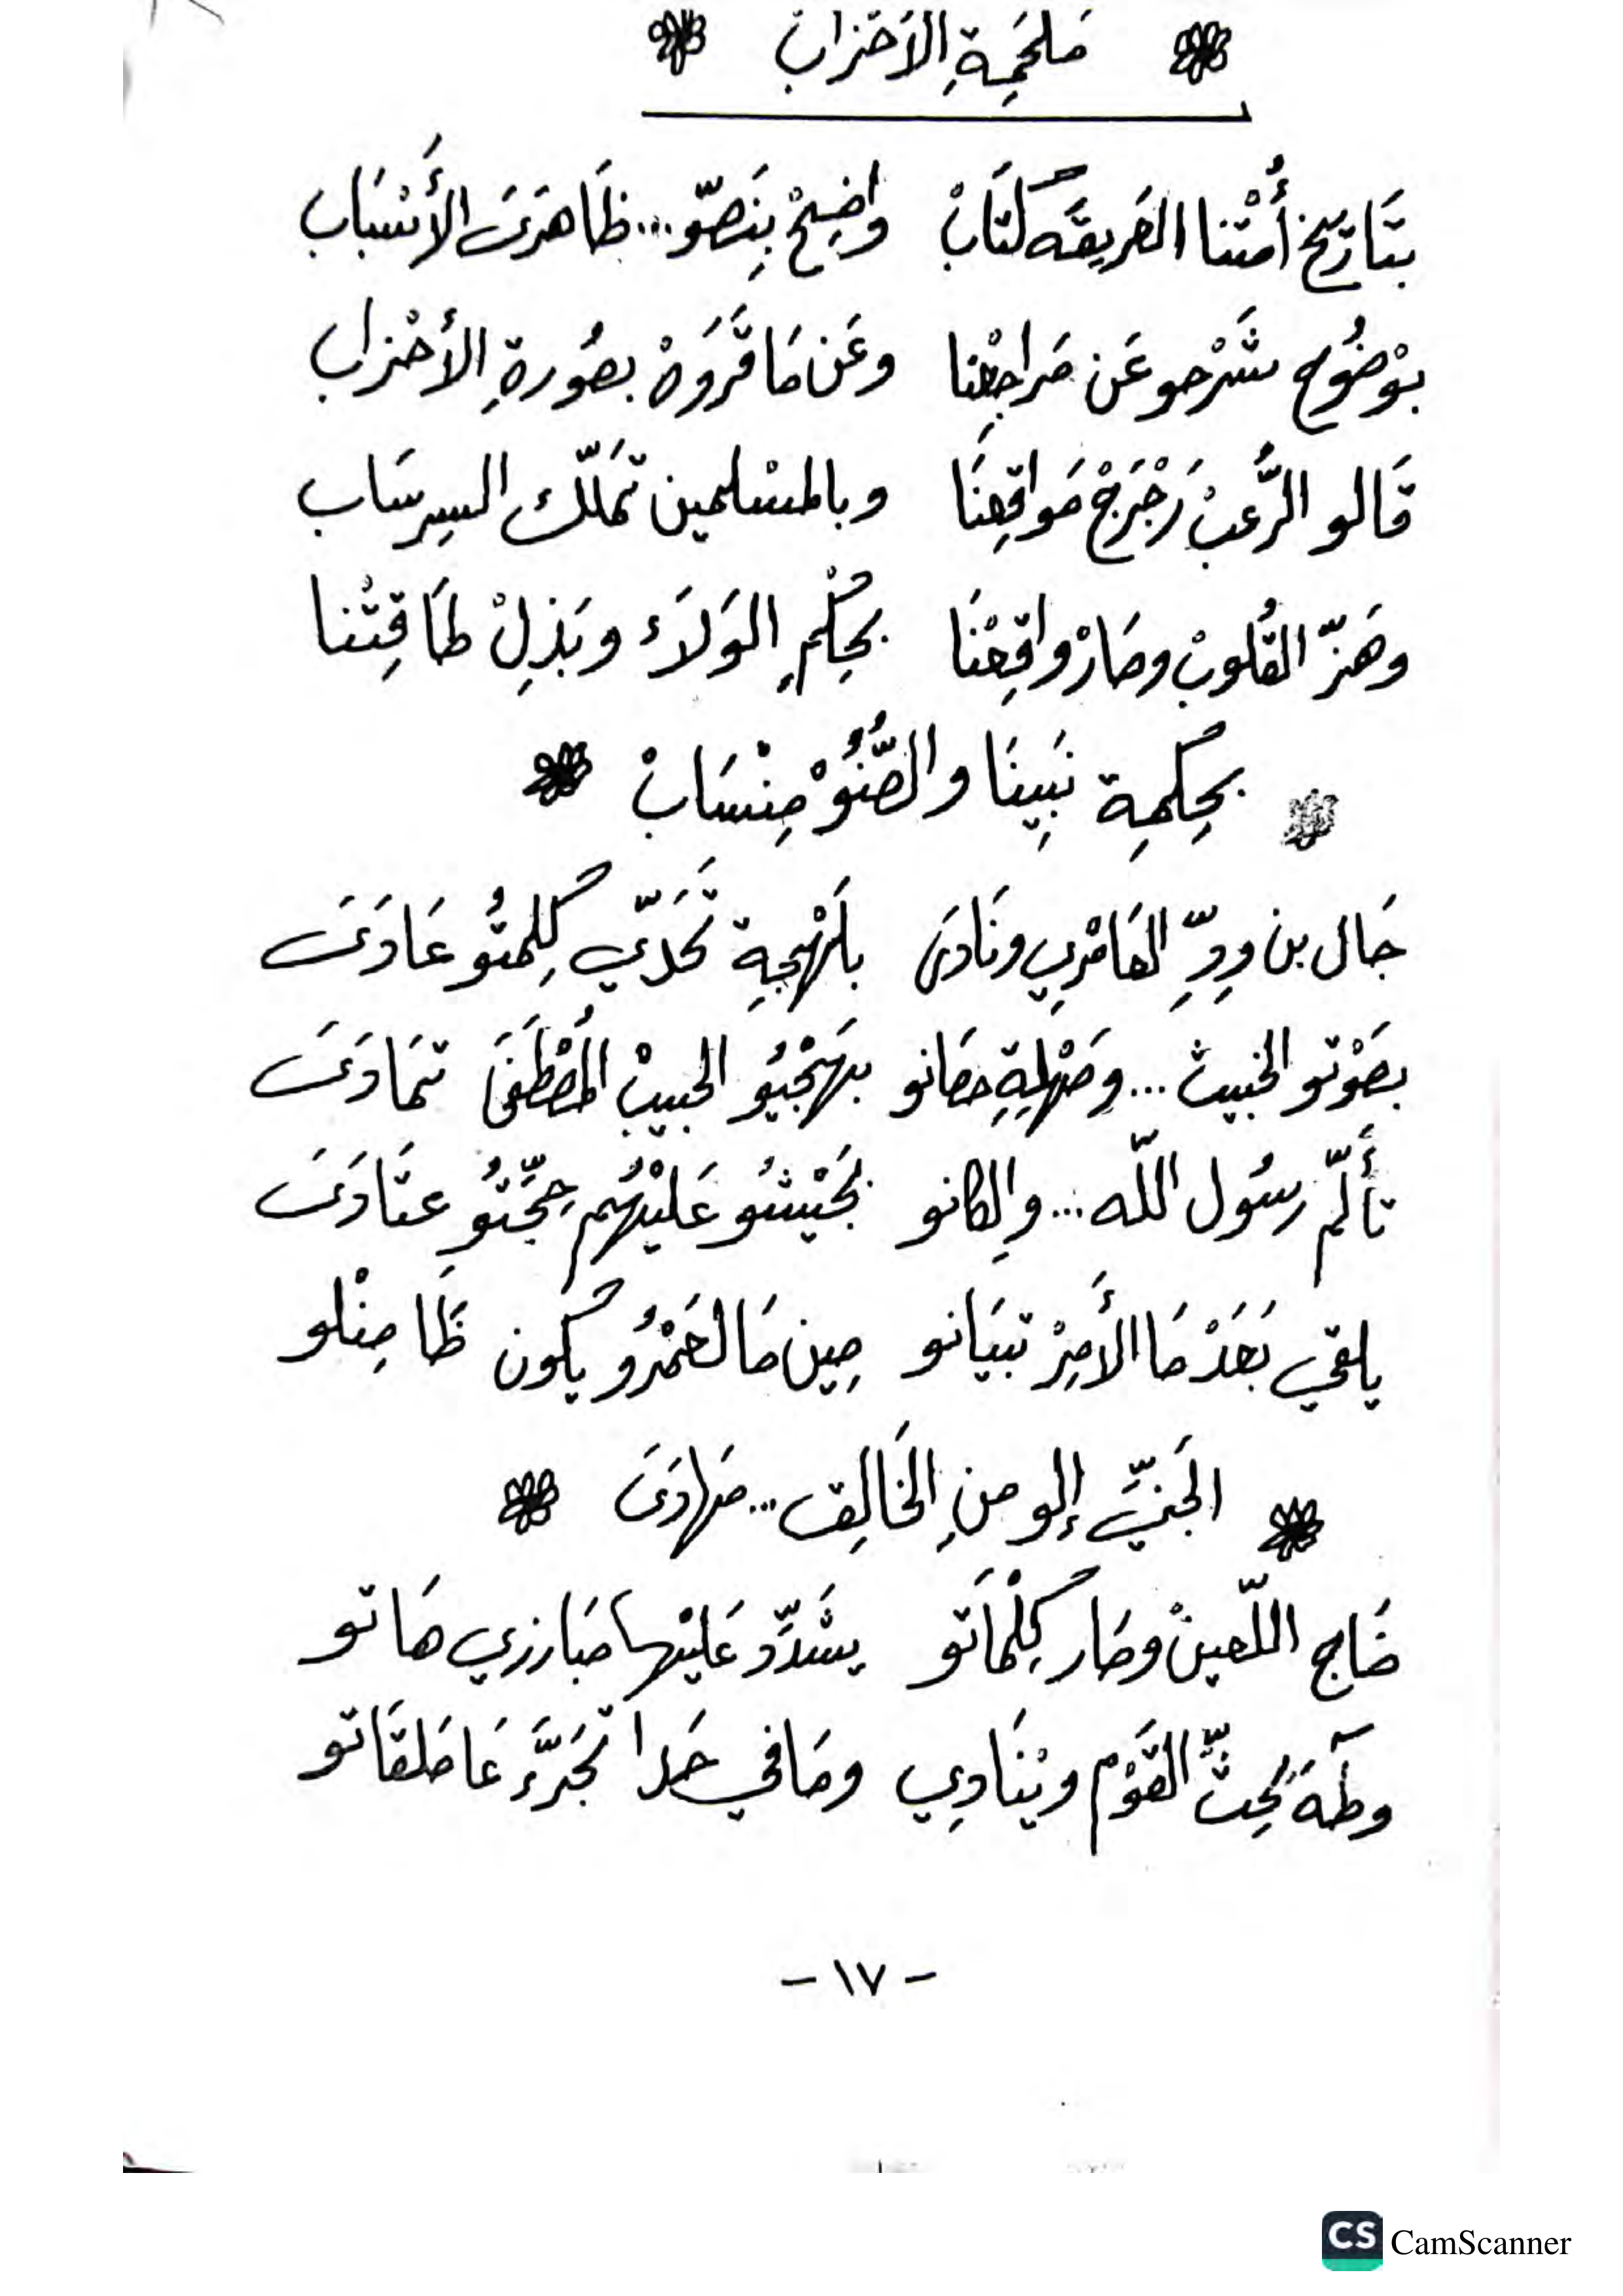 مَلحَمِةِ الأَحْزابْ
بتَاريخ أُمتْنا العَريقَه كْتَابْ واضِحْ بِنَصّو... ظَاهرَىَ الأَسْبَاب
بوْضُوح شَرْحو عَن مَراجِعْنا وعَن مَا قَّرَوَهْ بصُورةِ الأحْزاب
قَالو الرُّعبْ رَجْرَجْ مَواقِعنَا وبالمسْلمين تمَلّك السِرسَاب
وهَزّ القُلوبْ وصَارْ واقِعْنَا بحِكْمِ الوَلاَء وبَذِلْ طَاقِتْنا
بحِكمِة نَبِينَا والصُّنُوْ مِنْسَابْ
جَال بن وِدِّ العَامْرِي ونَادَىَ بلَهْجِة تَحَدّي كِلِمتُو عَادَىَ
بصَوْتو الخبيث... وصَهْلِةِ حصَانو بهَجْيُو الحبيبْ المُصْطَفَىَ تمَادَىَ
تأَلّم رسُول اللّه... والِكانو بجَيْشُو عَليْهُم حِجّتُو عتَادَىَ
يلقي بَعَدْ مَا الأَمِرْ تبيَانو مِين مَا لعَمْرُو يكُون ظَامِنْلو
الجَنِّي إلو منِ الخَالِق... مَهادَىَ
ضَاج اللّعينْ وصَار كِلْمَاتو يشَدِّد عَليْها مبَارزي هَاتو
وطَهَ بحِثّ القَوْم ويْنَادِي ومَا في حَدا تجَرَّء عَا مَلقَاتو
- ١٧ -
CS CamScanner